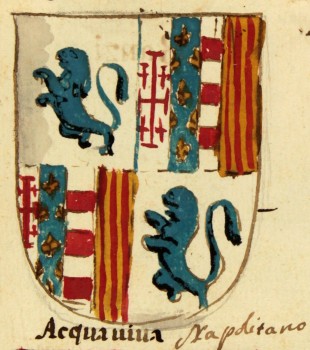 Acquauiua Napolitano